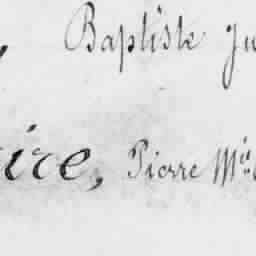 , Baptiste Ju
ire, Pierre M